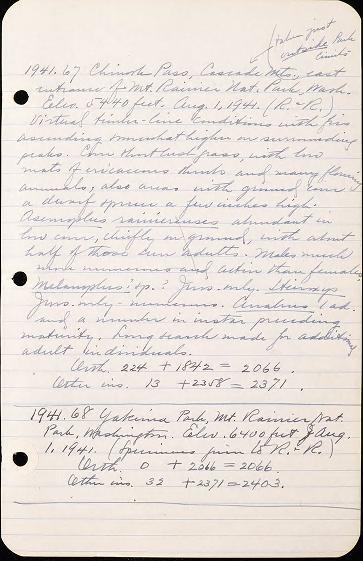 taken just
outside Park
limits
1941.67 Chinook Pass, Cascade Mts., east
entrance of Mt. Rainier Nat. Park, Wash.
Elev. 5440 feet. Aug. 1, 1941. (R.-R.)
Virtual timber-line conditions with firs
ascending somewhat higher on surrounding
peaks. Low that last pass, with low
mats of ericaceous shrubs and many flowing
annuals; also areas with ground cover
a dwarf spruce a few inches high.
Asemoplus rainierenses abundant in
low cover, chiefly on ground, with about
half of those seen adults. Males much
more numerous and active than females.
Melanoplus? sp.? Juvs. only.
Juvs. only - numerous. Anabrus 1 ad.
and a number in instar preceding
maturity. Long search made for additional
adult individuals.
Orth. 224 + 1842 = 2066.
Other ins. 13 + 2358 = 2371.
1941.68 Yakima Park, Mt. Rainier Nat.
Park, Washington. Elev. 6400 feet Aug.
1, 1941. (Specimens given to R.-R.)
Orth. 0 + 2066 = 2066.
Other ins. 32 + 2371 = 2403.